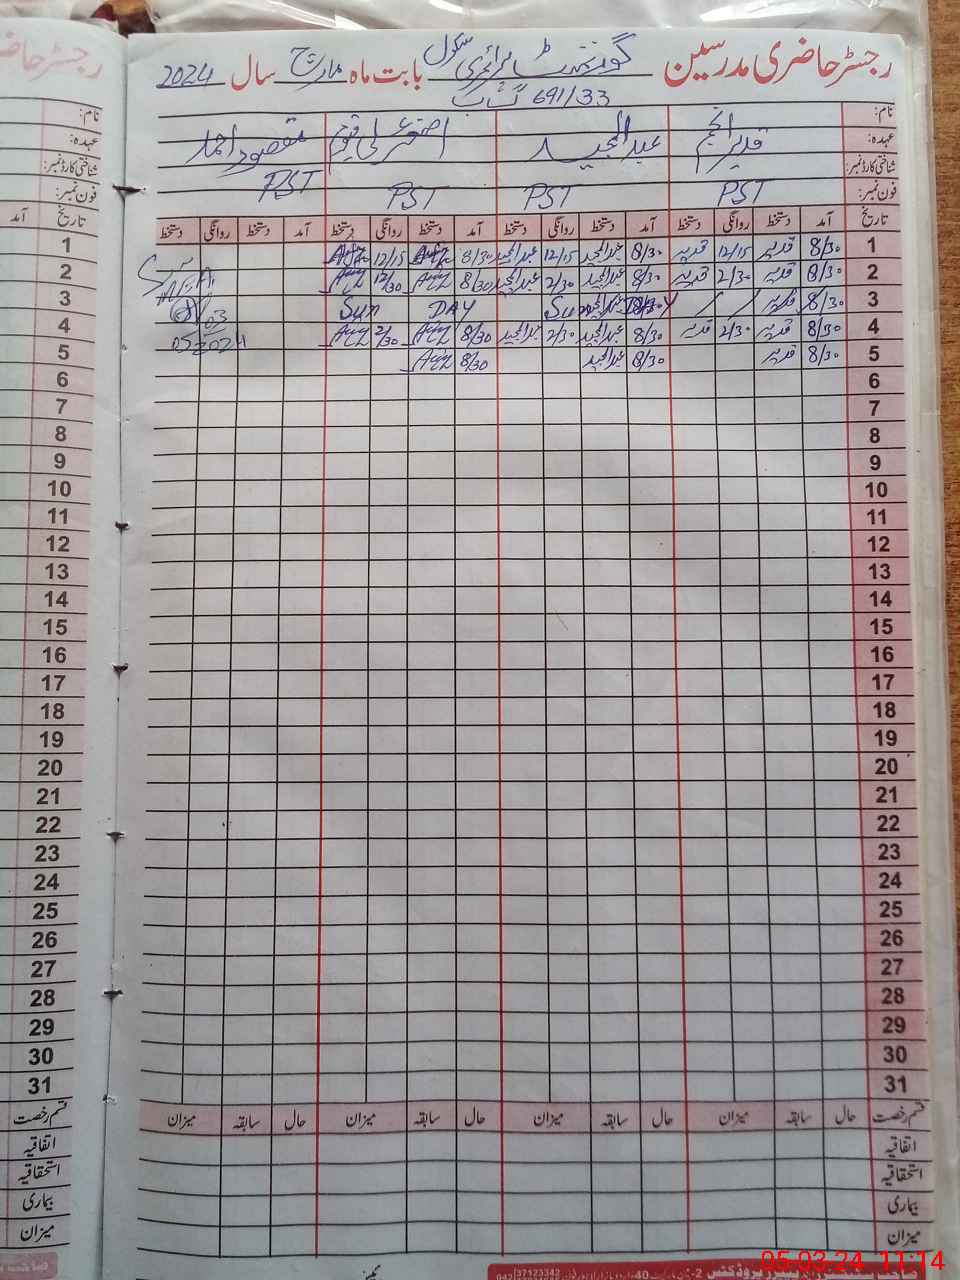 رجسٹر حاضری مدرسین گورنمنٹ پرائمری سکول بابت ماہ مارچ سال 2024
691/33 گ ب
نام:
عہدہ:
شناختی کارڈ نمبر:
فون نمبر:
قدیر انجم عبدالمجید اصغر علی قیوم مقصود احمد
PST PST PST PST
تاریخ آمد دستخط روانگی دستخط آمد دستخط روانگی دستخط آمد دستخط روانگی دستخط آمد دستخط روانگی دستخط
1 8/30 قدیر 12/15 قدیر 8/30 عبدالمجید 12/15 عبدالمجید 8/30 12/15
2 8/30 قدیر 2/30 قدیر 8/30 عبدالمجید 2/30 عبدالمجید 8/30 12/30
3 8/30 قدیر / / Sun DAY Sun
4 8/30 قدیر 2/30 قدیر 8/30 عبدالمجید 2/30 عبدالمجید 8/30 2/30
5 8/30 قدیر 8/30 عبدالمجید 8/30
05 03 2024
6
7
8
9
10
11
12
13
14
15
16
17
18
19
20
21
22
23
24
25
26
27
28
29
30
31
قسم رخصت حال سابقہ میزان حال سابقہ میزان حال سابقہ میزان حال سابقہ میزان
اتفاقیہ
استحقاقیہ
بیماری
میزان
رجسٹر حا
آمد تاریخ
1
2
3
4
5
6
7
8
9
10
11
12
13
14
15
16
17
18
19
20
21
22
23
24
25
26
27
28
29
30
31
قسم رخصت
اتفاقیہ
استحقاقیہ
بیماری
میزان
37123342
05-03-24 11:14